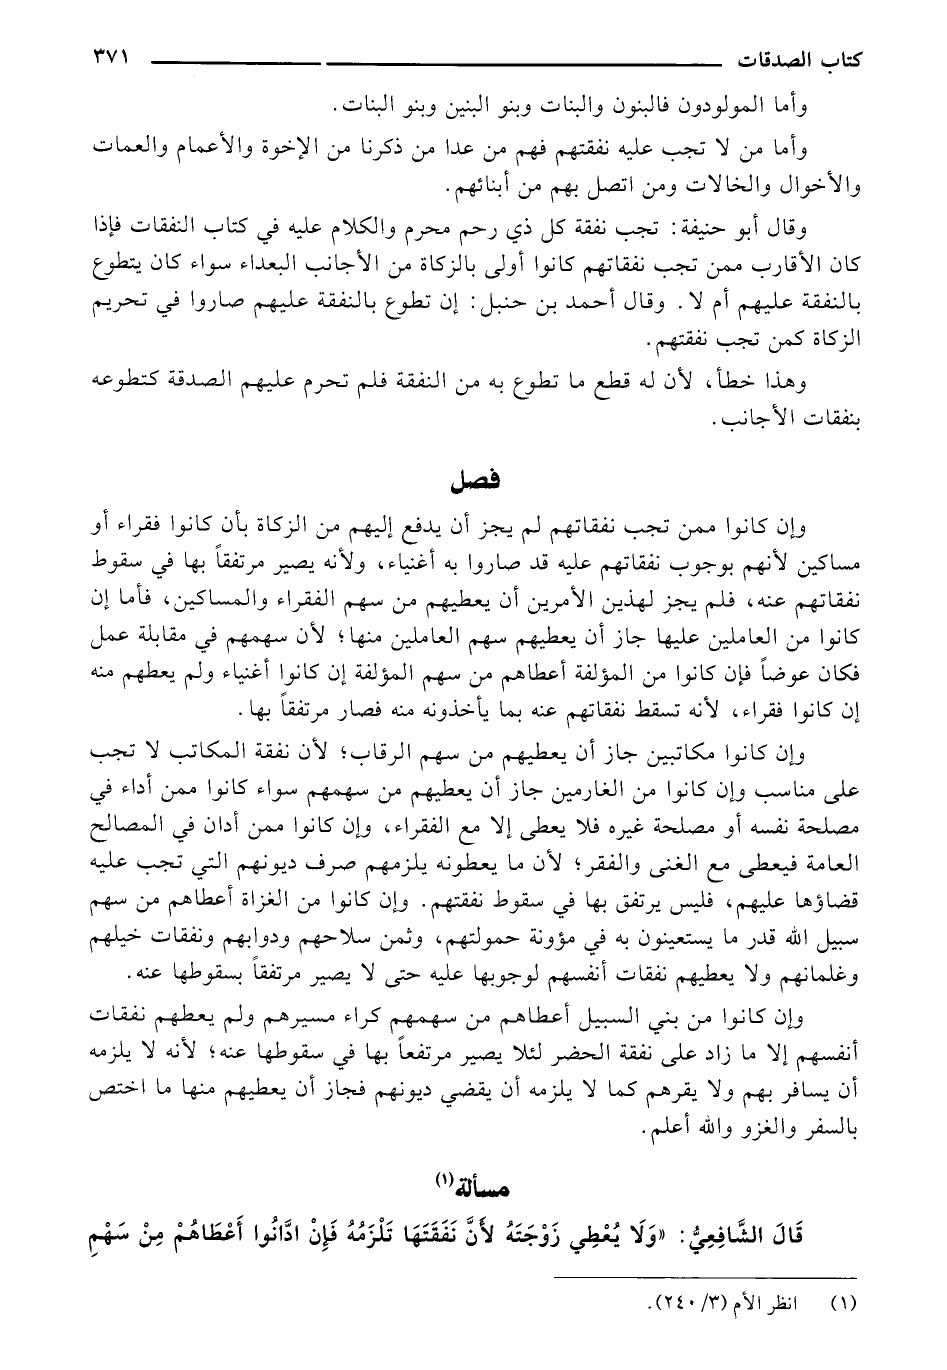 كتاب الصدقات ٣٧١
وأما المولودون فالبنون والبنات وبنو البنين وبنو البنات.
وأما من لا تجب عليه نفقتهم فهم من عدا من ذكرنا من الإخوة والأعمام والعمات
والأخوال والخالات ومن اتصل بهم من أبنائهم.
وقال أبو حنيفة: تجب نفقة كل ذي رحم محرم والكلام عليه في كتاب النفقات فإذا
كان الأقارب ممن تجب نفقاتهم كانوا أولى بالزكاة من الأجانب البعداء سواء كان يتطوع
بالنفقة عليهم أم لا. وقال أحمد بن حنبل: إن تطوع بالنفقة عليهم صاروا في تحريم
الزكاة كمن تجب نفقتهم.
وهذا خطأ، لأن له قطع ما تطوع به من النفقة فلم تحرم عليهم الصدقة كتطوعه
بنفقات الأجانب.
فصل
وإن كانوا ممن تجب نفقاتهم لم يجز أن يدفع إليهم من الزكاة بأن كانوا فقراء أو
مساكين لأنهم بوجوب نفقاتهم عليه قد صاروا به أغنياء، ولأنه يصير مرتفقاً بها في سقوط
نفقاتهم عنه، فلم يجز لهذين الأمرين أن يعطيهم من سهم الفقراء والمساكين، فأما إن
كانوا من العاملين عليها جاز أن يعطيهم سهم العاملين منها؛ لأن سهمهم في مقابلة عمل
فكان عوضاً فإن كانوا من المؤلفة أعطاهم من سهم المؤلفة إن كانوا أغنياء ولم يعطهم منه
إن كانوا فقراء، لأنه تسقط نفقاتهم عنه بما يأخذونه منه فصار مرتفقاً بها.
وإن كانوا مكاتبين جاز أن يعطيهم من سهم الرقاب؛ لأن نفقة المكاتب لا تجب
على مناسب وإن كانوا من الغارمين جاز أن يعطيهم من سهمهم سواء كانوا ممن أداء في
مصلحة نفسه أو مصلحة غيره فلا يعطى إلا مع الفقراء، وإن كانوا ممن أدان في المصالح
العامة فيعطى مع الغنى والفقر؛ لأن ما يعطونه يلزمهم صرف ديونهم التي تجب عليه
قضاؤها عليهم، فليس يرتفق بها في سقوط نفقتهم. وإن كانوا من الغزاة أعطاهم من سهم
سبيل الله قدر ما يستعينون به في مؤونة حمولتهم، وثمن سلاحهم ودوابهم ونفقات خيلهم
وغلمانهم ولا يعطيهم نفقات أنفسهم لوجوبها عليه حتى لا يصير مرتفقاً بسقوطها عنه.
وإن كانوا من بني السبيل أعطاهم من سهمهم كراء مسيرهم ولم يعطهم نفقات
أنفسهم إلا ما زاد على نفقة الحضر لئلا يصير مرتفعاً بها في سقوطها عنه؛ لأنه لا يلزمه
أن يسافر بهم ولا يقرهم كما لا يلزمه أن يقضي ديونهم فجاز أن يعطيهم منها ما اختص
بالسفر والغزو والله أعلم.
مسألة(١)
قَالَ الشَّافِعِيُّ: «وَلَا يُعْطِي زَوْجَتَهُ لأَنَّ نَفَقَتَهَا تَلْزَمُهُ فَإِنْ ادَّانُوا أَعْطَاهُمْ مِنْ سَهْمِ
(١) انظر الأم (٢٤٠/٣).